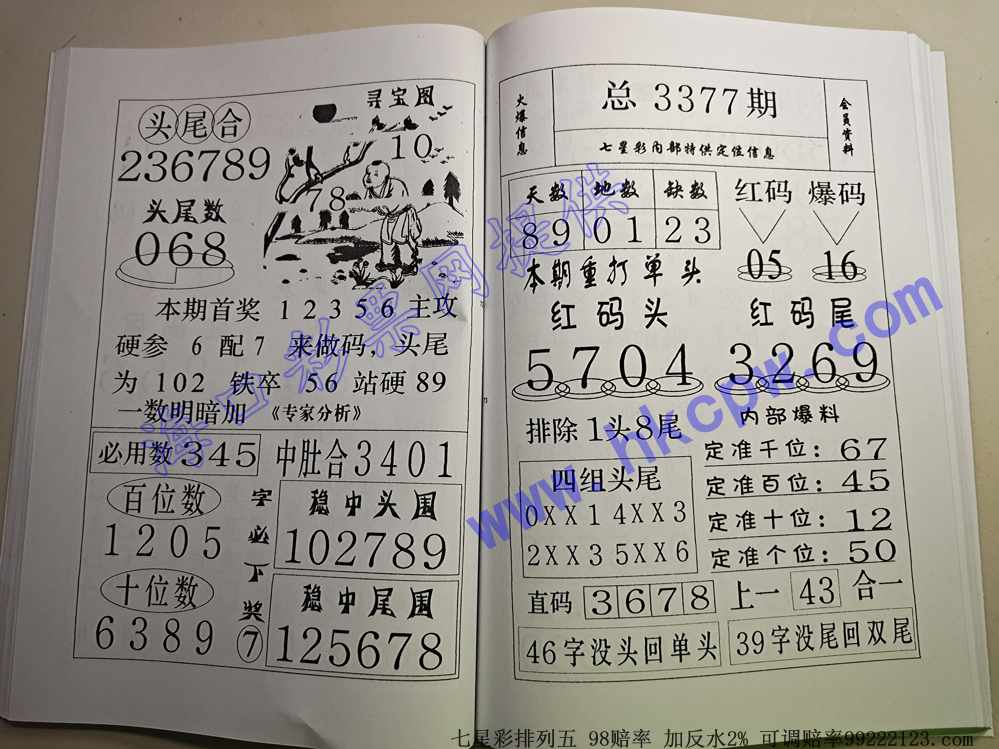 头尾合
236789
头尾数
068
寻宝图
10
78
本期首奖 12356 主攻
硬参 6 配 7 来做码，头尾
为 102 铁卒 56 站硬 89
一数明暗加 《专家分析》
必用数 345
中肚合3401
百位数
1205
十位数
6389
字必下奖⑦
稳中头围
102789
稳中尾围
125678
火爆信息
总 3377期
七星彩内部特供定位信息
会员资料
天数 地数 缺数
89 01 23
红码 爆码
05 16
本期重打单头
红码头 红码尾
5704 3269
排除1头8尾
四组头尾
0XX1 4XX3
2XX3 5XX6
内部爆料
定准千位：67
定准百位：45
定准十位：12
定准个位：50
直码 3678 上一 43 合一
46字没头回单头
39字没尾回双尾
海口彩票网提供
www.hkcpw.com
七星彩排列五 98赔率 加反水2% 可调赔率99222123.com